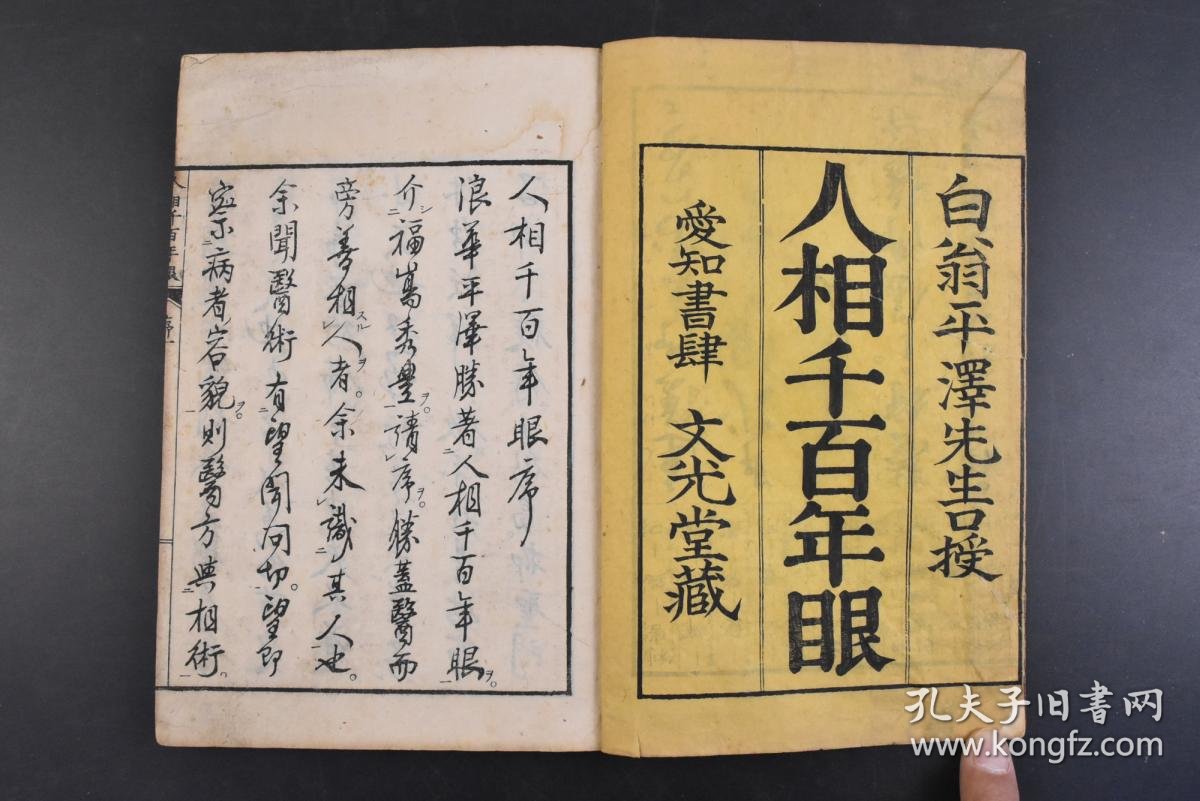 白翁平澤先生口授
人相千百年眼
愛知書肆 文光堂藏
人相千百年眼序
浪華平澤勝著人相千百年眼ヲ。
介シ福嶌秀豊ヲ。請序ヲ。勝蓋醫而
旁善相スル人ヲ者。余未識其人也。
余聞醫術有望聞問切。望即
察病者容貌ヲ。則醫方與相術。
人相千百年眼 序一
孔夫子旧书网
www.kongfz.com